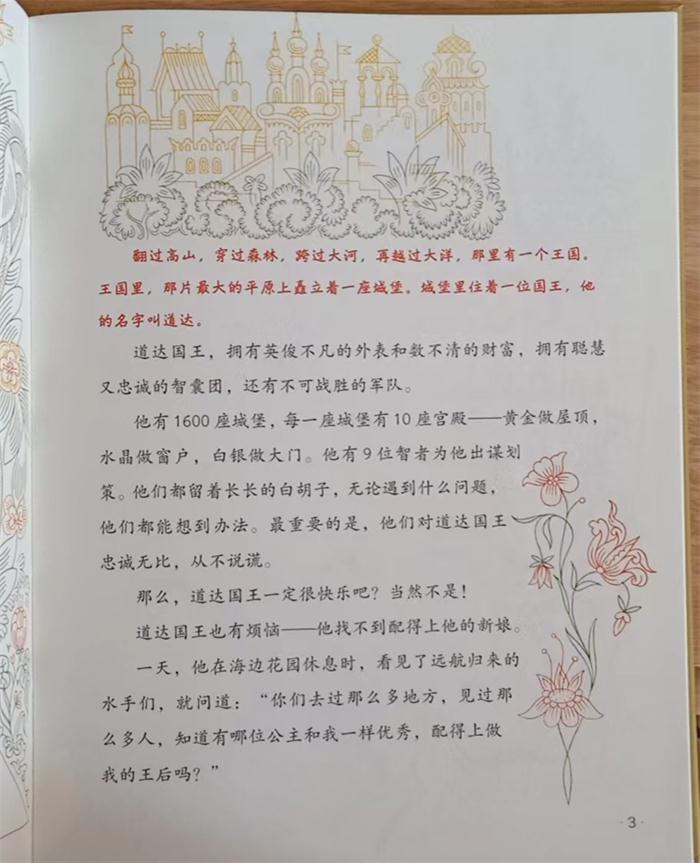 翻过高山，穿过森林，跨过大河，再越过大洋，那里有一个王国。
王国里，那片最大的平原上矗立着一座城堡。城堡里住着一位国王，他
的名字叫道达。
道达国王，拥有英俊不凡的外表和数不清的财富，拥有聪慧
又忠诚的智囊团，还有不可战胜的军队。
他有1600座城堡，每一座城堡有10座宫殿——黄金做屋顶，
水晶做窗户，白银做大门。他有9位智者为他出谋划
策。他们都留着长长的白胡子，无论遇到什么问题，
他们都能想到办法。最重要的是，他们对道达国王
忠诚无比，从不说谎。
那么，道达国王一定很快乐吧？当然不是！
道达国王也有烦恼——他找不到配得上他的新娘。
一天，他在海边花园休息时，看见了远航归来的
水手们，就问道：“你们去过那么多地方，见过那
么多人，知道有哪位公主和我一样优秀，配得上做
我的王后吗？”
·3·